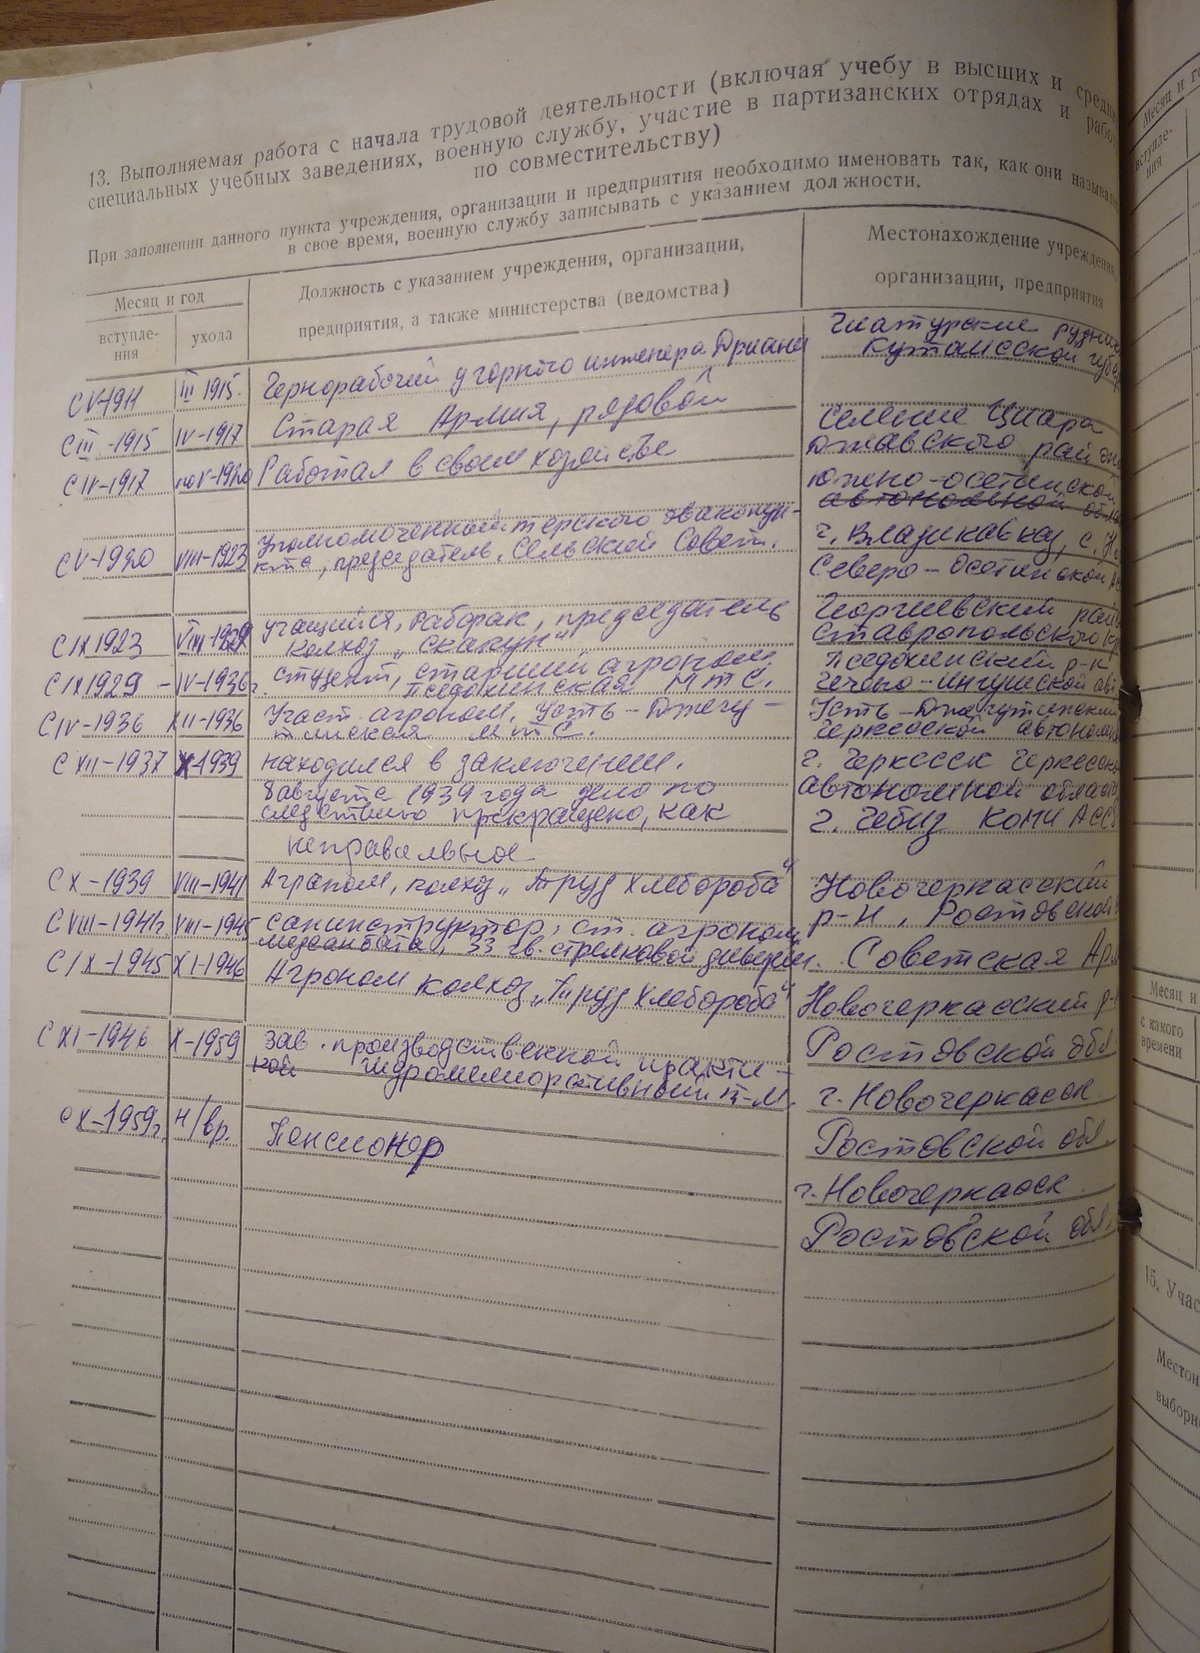 13. Выполняемая работа с начала трудовой деятельности (включая учебу в высших и средни
специальных учебных заведениях, военную службу, участие в партизанских отрядах и рабо
по совместительству)
При заполнении данного пункта учреждения, организации и предприятия необходимо именовать так, как они называли
в свое время, военную службу записывать с указанием должности.
Месяц и год
вступле-
ния
ухода
Должность с указанием учреждения, организации,
предприятия, а также министерства (ведомства)
Местонахождение учреждения,
организации, предприятия
С V-1911 III 1915. Чернорабочий у горного инженера Дриана
Чиатурские рудни
Кутаисской губер
С III-1915 IV-1917 Старая Армия, рядовой
С IV-1917 по V-1920 Работал в своем хозяйстве
Селение Циара
Джавского района
Южно-осетинской
автономной обл
С V-1920 VIII-1923 Уполномоченный терского эвакопун-
кта, председатель, Сельский Совет.
г. Владикавказ, с.
Северо-Осетинской А
С IX 1923 VIII-1929 Учащийся, рабфак, председатель
колхоз „Скакун"
Георгиевский рай
Ставропольского кр
С IX 1929 - IV-1936г. студент, старший агроном,
Пседахинская МТС.
Пседахинский р-н
Чечено-ингушской авт
С IV-1936 XII-1936 Участ. агроном, Усть-Джегу-
тинская МТС.
Усть-Джегутинский
Черкесской автоном
С XII-1937 X-1939 находился в заключении.
8 августа 1939 года дело по
следствию прекращено, как
неправильное
г. Черкесск Черкесской
автономной области
г. Чебиз Коми АССР
С X-1939 VIII-1941 Аграном, колхоз „Труд Хлебороба"
Новочеркасский
р-н, Ростовской
С VIII-1941г. VIII-1945 санинструктор, ст. агроном,
медсанбата, 33 гв. стрелковой дивизии.
Советская Ар
С IX-1945 XI-1946 Агроном колхоз „Труд Хлебороба"
Новочеркасский р-н
Ростовской обл
С XI-1946 X-1959 зав. производственной практи-
кой гидромелиоративный т-м.
г. Новочеркасск
Ростовской обл
с X-1959г. н/вр. Пенсионер
г. Новочеркасск
Ростовской обл.
Месяц и го
вступле-
ния
Месяц и
с какого
времени
15. Учас
Местон
выборн